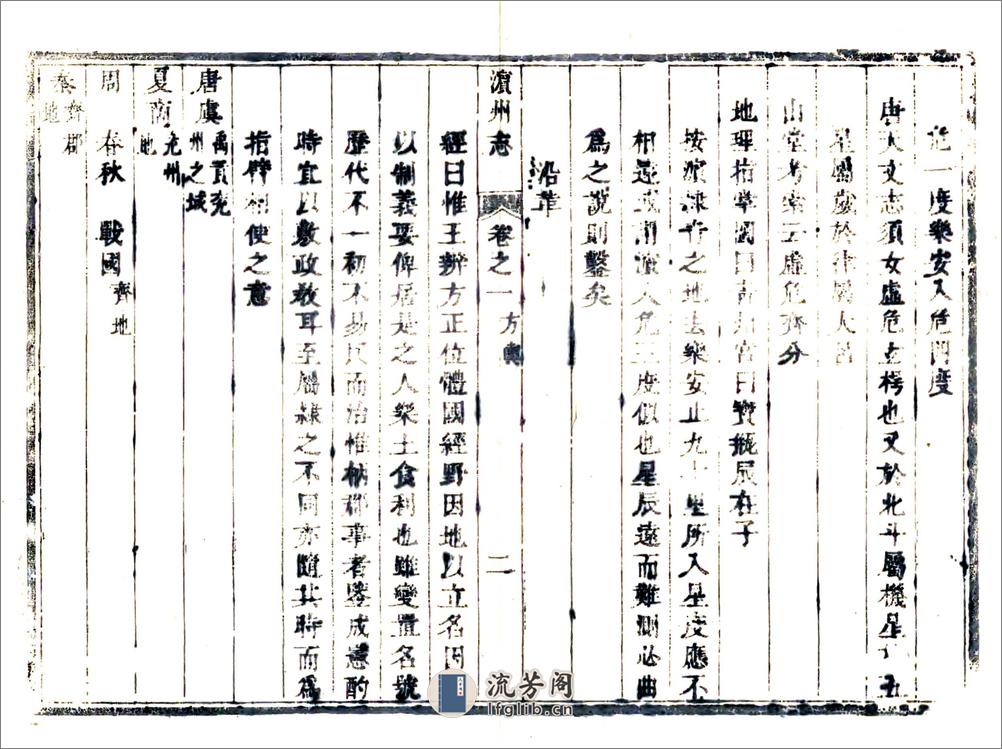 一度樂安入危四度
唐天文志須女虛危玄枵也又於北斗屬機星
星屬
山堂考索云虛危齊分
地理指掌圖曰宮曰寶瓶辰在子
按濱之地去樂安止九十里所入星度應不
相遠或謂濱入危三度似也星辰遠而難測必曲
為之說則鑿矣
沿革
濵州志 卷之一 方輿 二
經曰惟王辨方正位體國經野因地以立名因
以制義要俾居是之人樂土食利也雖變置名號
歷代不一初不易民而治惟秉郡事者鑒成憲酌
時宜以敷政教耳至屬隸之不同亦隨其時而為
指臂相使之意
唐虞 禹貢兗州之域
夏商 兗州地
周 春秋 戰國 齊地
秦 齊郡地
流芳阁
lfglib.cn